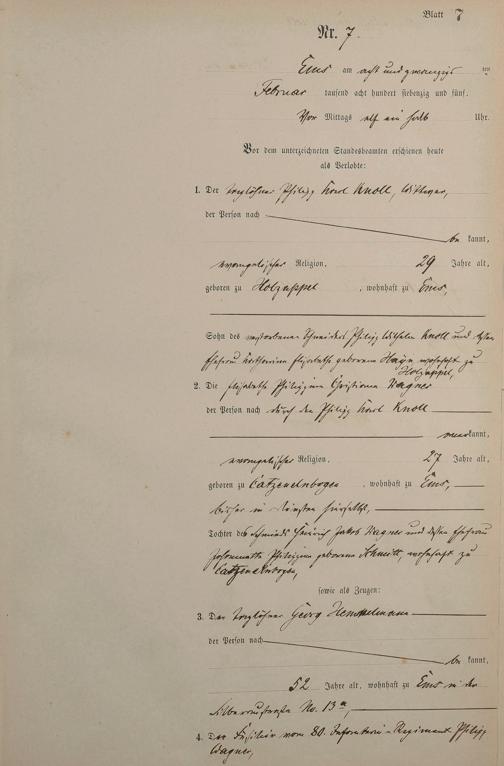 Blatt 7
Nr. 7.
Ems am acht und zwanzig ten
Februar tausend acht hundert siebenzig und fünf.
Vor Mittags elf ein halb Uhr.
Vor dem unterzeichneten Standesbeamten erschienen heute
als Verlobte:
1. Der Taglöhner Philipp Karl Knoll, Wittwer,
der Person nach
be kannt,
evangelischer Religion, 29 Jahre alt,
geboren zu Holzappel, wohnhaft zu Ems,
Sohn des verstorbenen Schneiders Philipp Wilhelm Knoll und dessen
Ehefrau Katharina Elisabeth geborenen Hayn wohnhaft zu
Holzappel,
2. Die Elisabeth Philippine Christiane Wagner
der Person nach durch den Philipp Karl Knoll
kannt,
evangelischer Religion, 27 Jahre alt,
geboren zu Catzenelnbogen, wohnhaft zu Ems,
bisher in Diensten hierselbst,
Tochter des Schmieds Heinrich Jakob Wagner und dessen Ehefrau
Philippine geborenen Schmitt, wohnhaft zu
Catzenelnbogen,
sowie als Zeugen:
3. Der Taglöhner Georg
der Person nach
be kannt,
52 Jahre alt, wohnhaft zu Ems in der
No. 13a,
4. Der Füsilier vom 80. Infanterie-Regiment Philipp
Wagner,